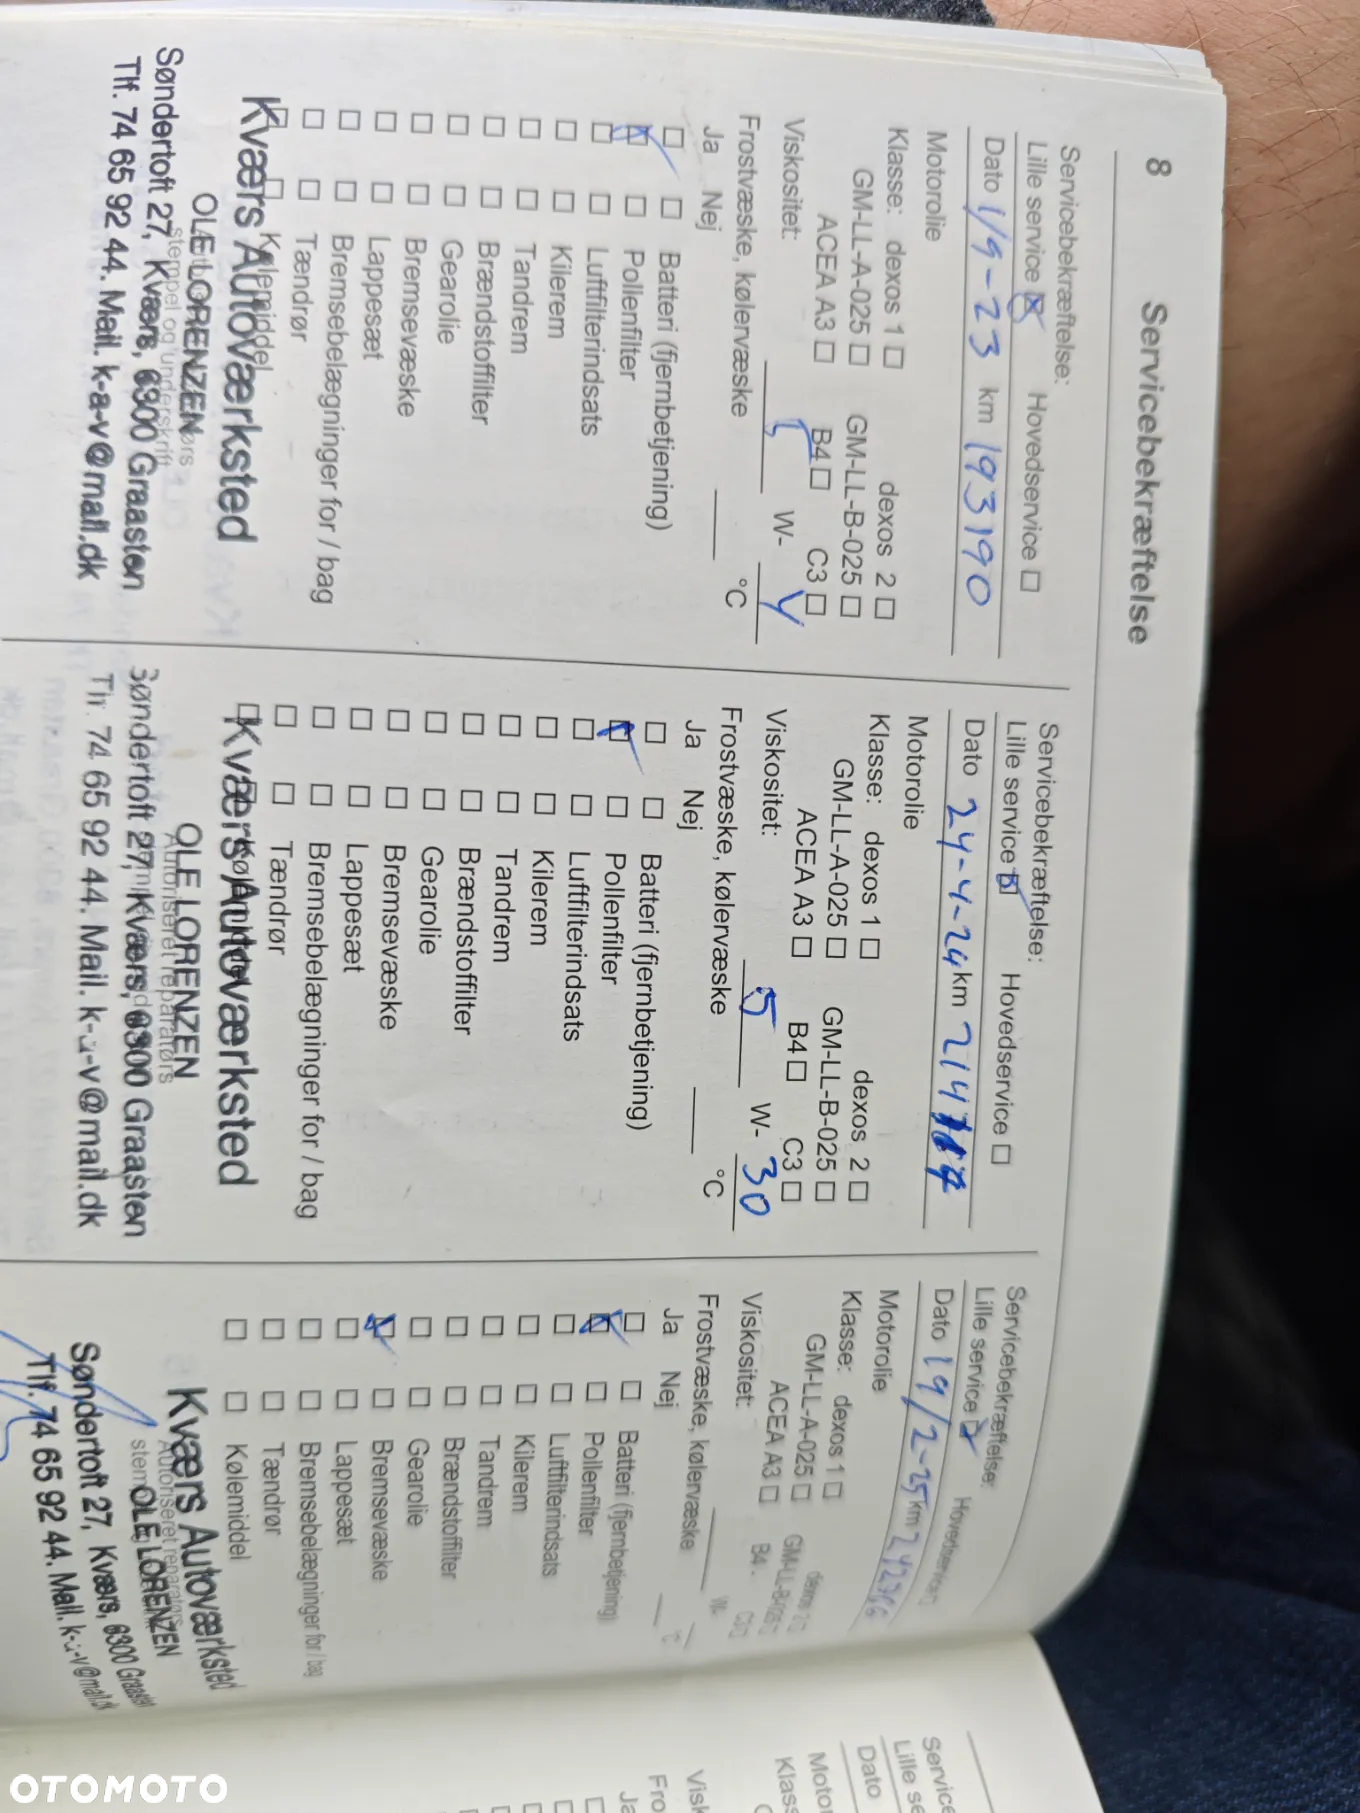 8 Servicebekræftelse
Servicebekræftelse:
Lille service ☒ Hovedservice ☐
Dato 1/9-23 km 193190
Motorolie
Klasse: dexos 1 ☐ dexos 2 ☐
GM-LL-A-025 ☐ GM-LL-B-025 ☐
ACEA A3 ☐ B4 ☐ C3 ☐
Viskositet: W-
Frostvæske, kølervæske °C
Ja Nej
☐ ☐ Batteri (fjernbetjening)
☒ ☐ Pollenfilter
☐ ☐ Luftfilterindsats
☐ ☐ Kilerem
☐ ☐ Tandrem
☐ ☐ Brændstoffilter
☐ ☐ Gearolie
☐ ☐ Bremsevæske
☐ ☐ Lappesæt
☐ ☐ Bremsebelægninger for / bag
☐ ☐ Tændrør
☐ ☐ Kølemiddel
Kværs Autoværksted
OLE LORENZEN
stempel og underskrift
Søndertoft 27, Kværs, 6300 Graasten
Tlf. 74 65 92 44. Mail. k-a-v@mail.dk
Servicebekræftelse:
Lille service ☒ Hovedservice ☐
Dato 24-4-24 km
Motorolie
Klasse: dexos 1 ☐ dexos 2 ☐
GM-LL-A-025 ☐ GM-LL-B-025 ☐
ACEA A3 ☐ B4 ☐ C3 ☐
Viskositet: 5 W- 30
Frostvæske, kølervæske °C
Ja Nej
☐ ☐ Batteri (fjernbetjening)
☒ ☐ Pollenfilter
☐ ☐ Luftfilterindsats
☐ ☐ Kilerem
☐ ☐ Tandrem
☐ ☐ Brændstoffilter
☐ ☐ Gearolie
☐ ☐ Bremsevæske
☐ ☐ Lappesæt
☐ ☐ Bremsebelægninger for / bag
☐ ☐ Tændrør
Kværs Autoværksted
Autoriseret reparatørs
OLE LORENZEN
Søndertoft 27, Kværs, 6300 Graasten
Tlf. 74 65 92 44. Mail. k-a-v@mail.dk
Servicebekræftelse:
Lille service ☒ Hovedservice ☐
Dato 19/2-25 km
Motorolie
Klasse: dexos 1 ☐ dexos 2 ☐
GM-LL-A-025 ☐ GM-LL-B-025 ☐
ACEA A3 ☐ B4 C3 ☐
Viskositet: W-
Frostvæske, kølervæske °C
Ja Nej
☐ ☐ Batteri (fjernbetjening)
☒ ☐ Pollenfilter
☐ ☐ Luftfilterindsats
☐ ☐ Kilerem
☐ ☐ Tandrem
☐ ☐ Brændstoffilter
☐ ☐ Gearolie
☒ ☐ Bremsevæske
☐ ☐ Lappesæt
☐ ☐ Bremsebelægninger for / bag
☐ ☐ Tændrør
☐ ☐ Kølemiddel
Kværs Autoværksted
Autoriseret reparatørs
OLE LORENZEN
Søndertoft 27, Kværs, 6300 Graasten
Tlf. 74 65 92 44. Mail. k-a-v@mail.dk
Service
Lille se
Dato
Motor
Klass
Visk
Fro
Ja
OTOMOTO